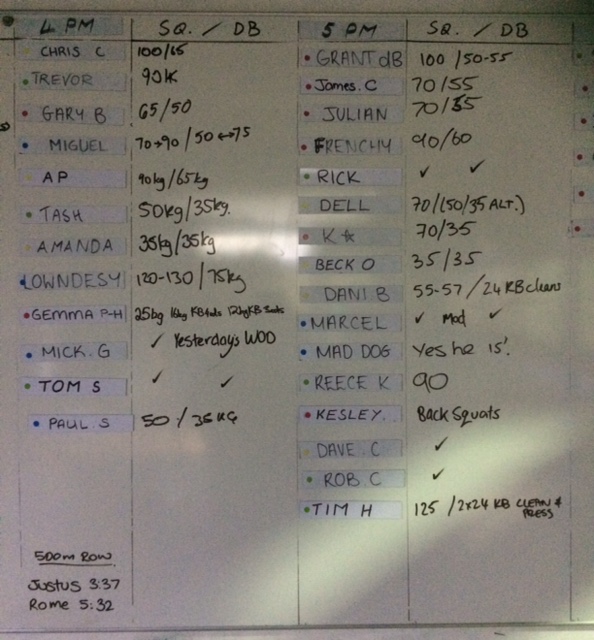 4 PM SQ. / DB
CHRIS C 100/65
TREVOR 90K
GARY B 65/50
MIGUEL 70→90 / 50↔75
AP 90kg/65kg
TASH 50kg/35kg.
AMANDA 35kg/35kg
LOWNDESY 120-130 / 75kg
GEMMA P-H 25kg 16kg KB 12kg KB
MICK. G ✓ Yesterday's WOD
TOM S ✓ ✓
PAUL. S 50 / 35KG
500m Row
Justus 3:37
Rome 5:32
5 PM SQ. / DB
GRANT dB 100 / 50-55
James. C 70/55
JULIAN 70/55
FRENCHY 90/60
RICK ✓ ✓
DELL 70/(50/35 ALT.)
K 70/35
BECK O 35/35
DANI B 55-57 / 24 KB cleans
MARCEL ✓ Mod ✓
MAD DOG Yes he is!
REECE K 90
KESLEY. Back Squats
DAVE. C ✓
ROB. C ✓
TIM H 125 / 2x24 KB CLEAN &
PRESS